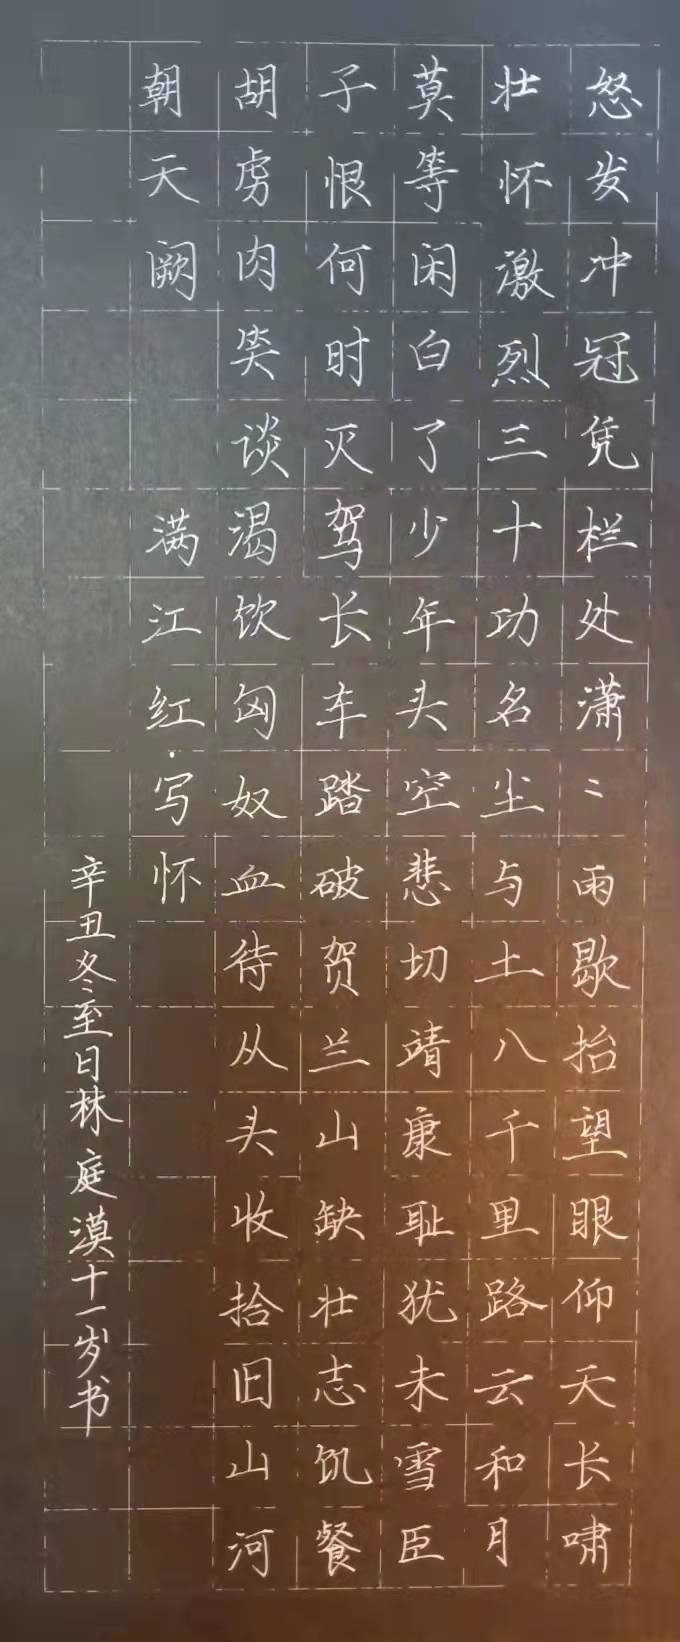 怒发冲冠凭栏处潇〻雨歇抬望眼仰天长啸
壮怀激烈三十功名尘与土八千里路云和月
莫等闲白了少年头空悲切靖康耻犹未雪臣
子恨何时灭驾长车踏破贺兰山缺壮志饥餐
胡虏肉笑谈渴饮匈奴血待从头收拾旧山河
朝天阙 满江红·写怀
辛丑冬至日林庭漠十一岁书